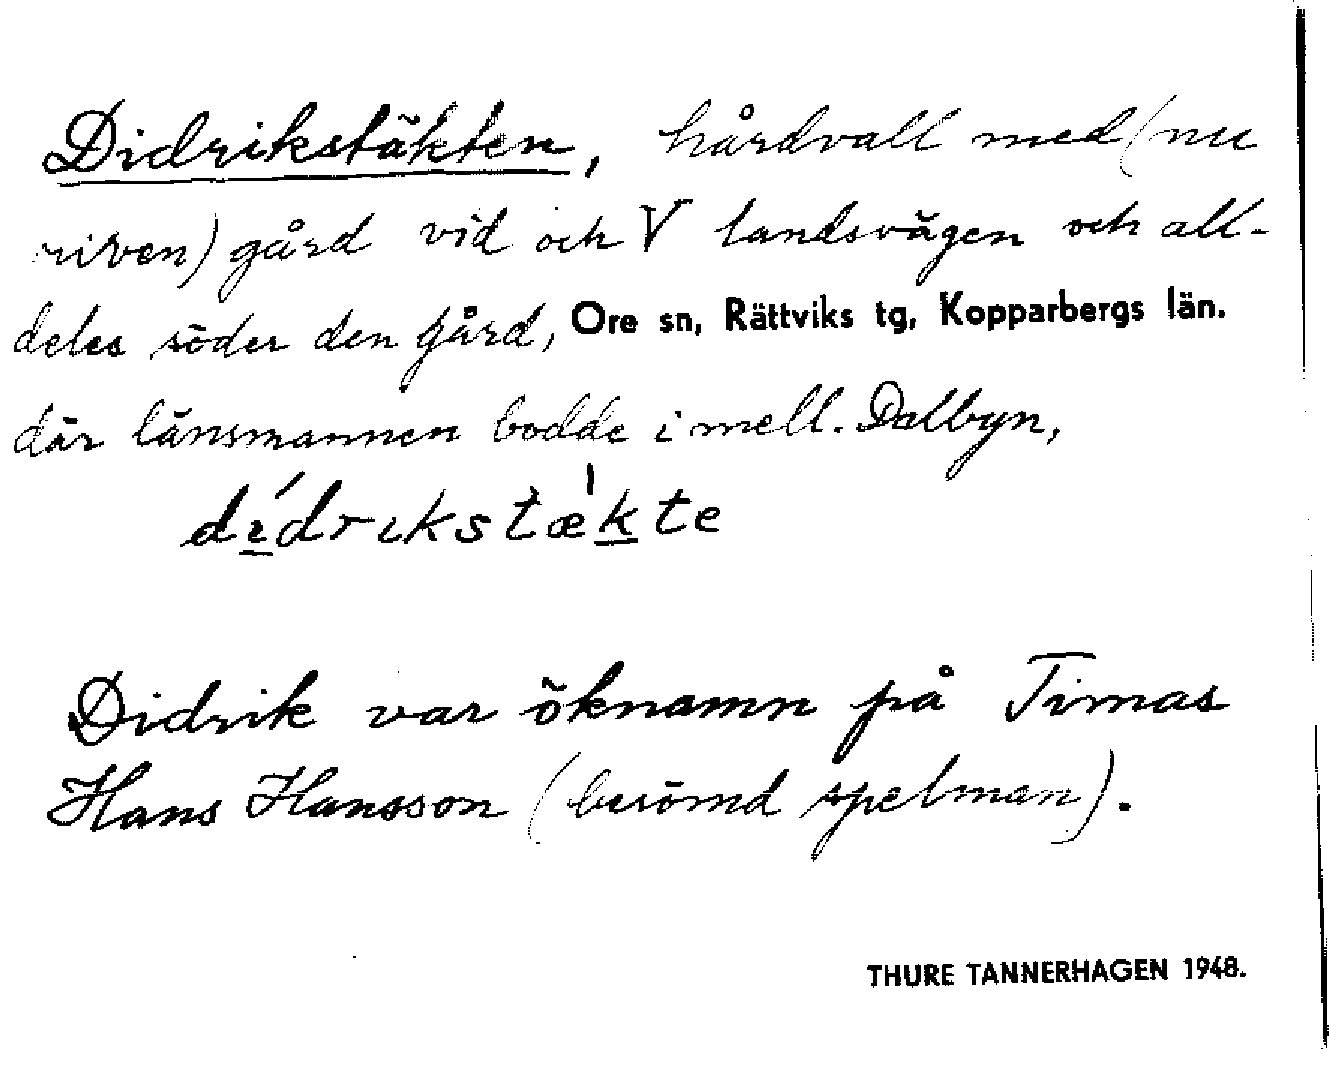 Didrikstäkten, hårdvall med (nu
riven) gård vid och V landsvägen och all-
deles söder den gård, Ore sn, Rättviks tg, Kopparbergs län.
där länsmannen bodde i mell. Dalbyn,
dɪ́drɪkstæ̍kte
Didrik var öknamn på Timas
Hans Hansson (berömd spelman).
THURE TANNERHAGEN 1948.